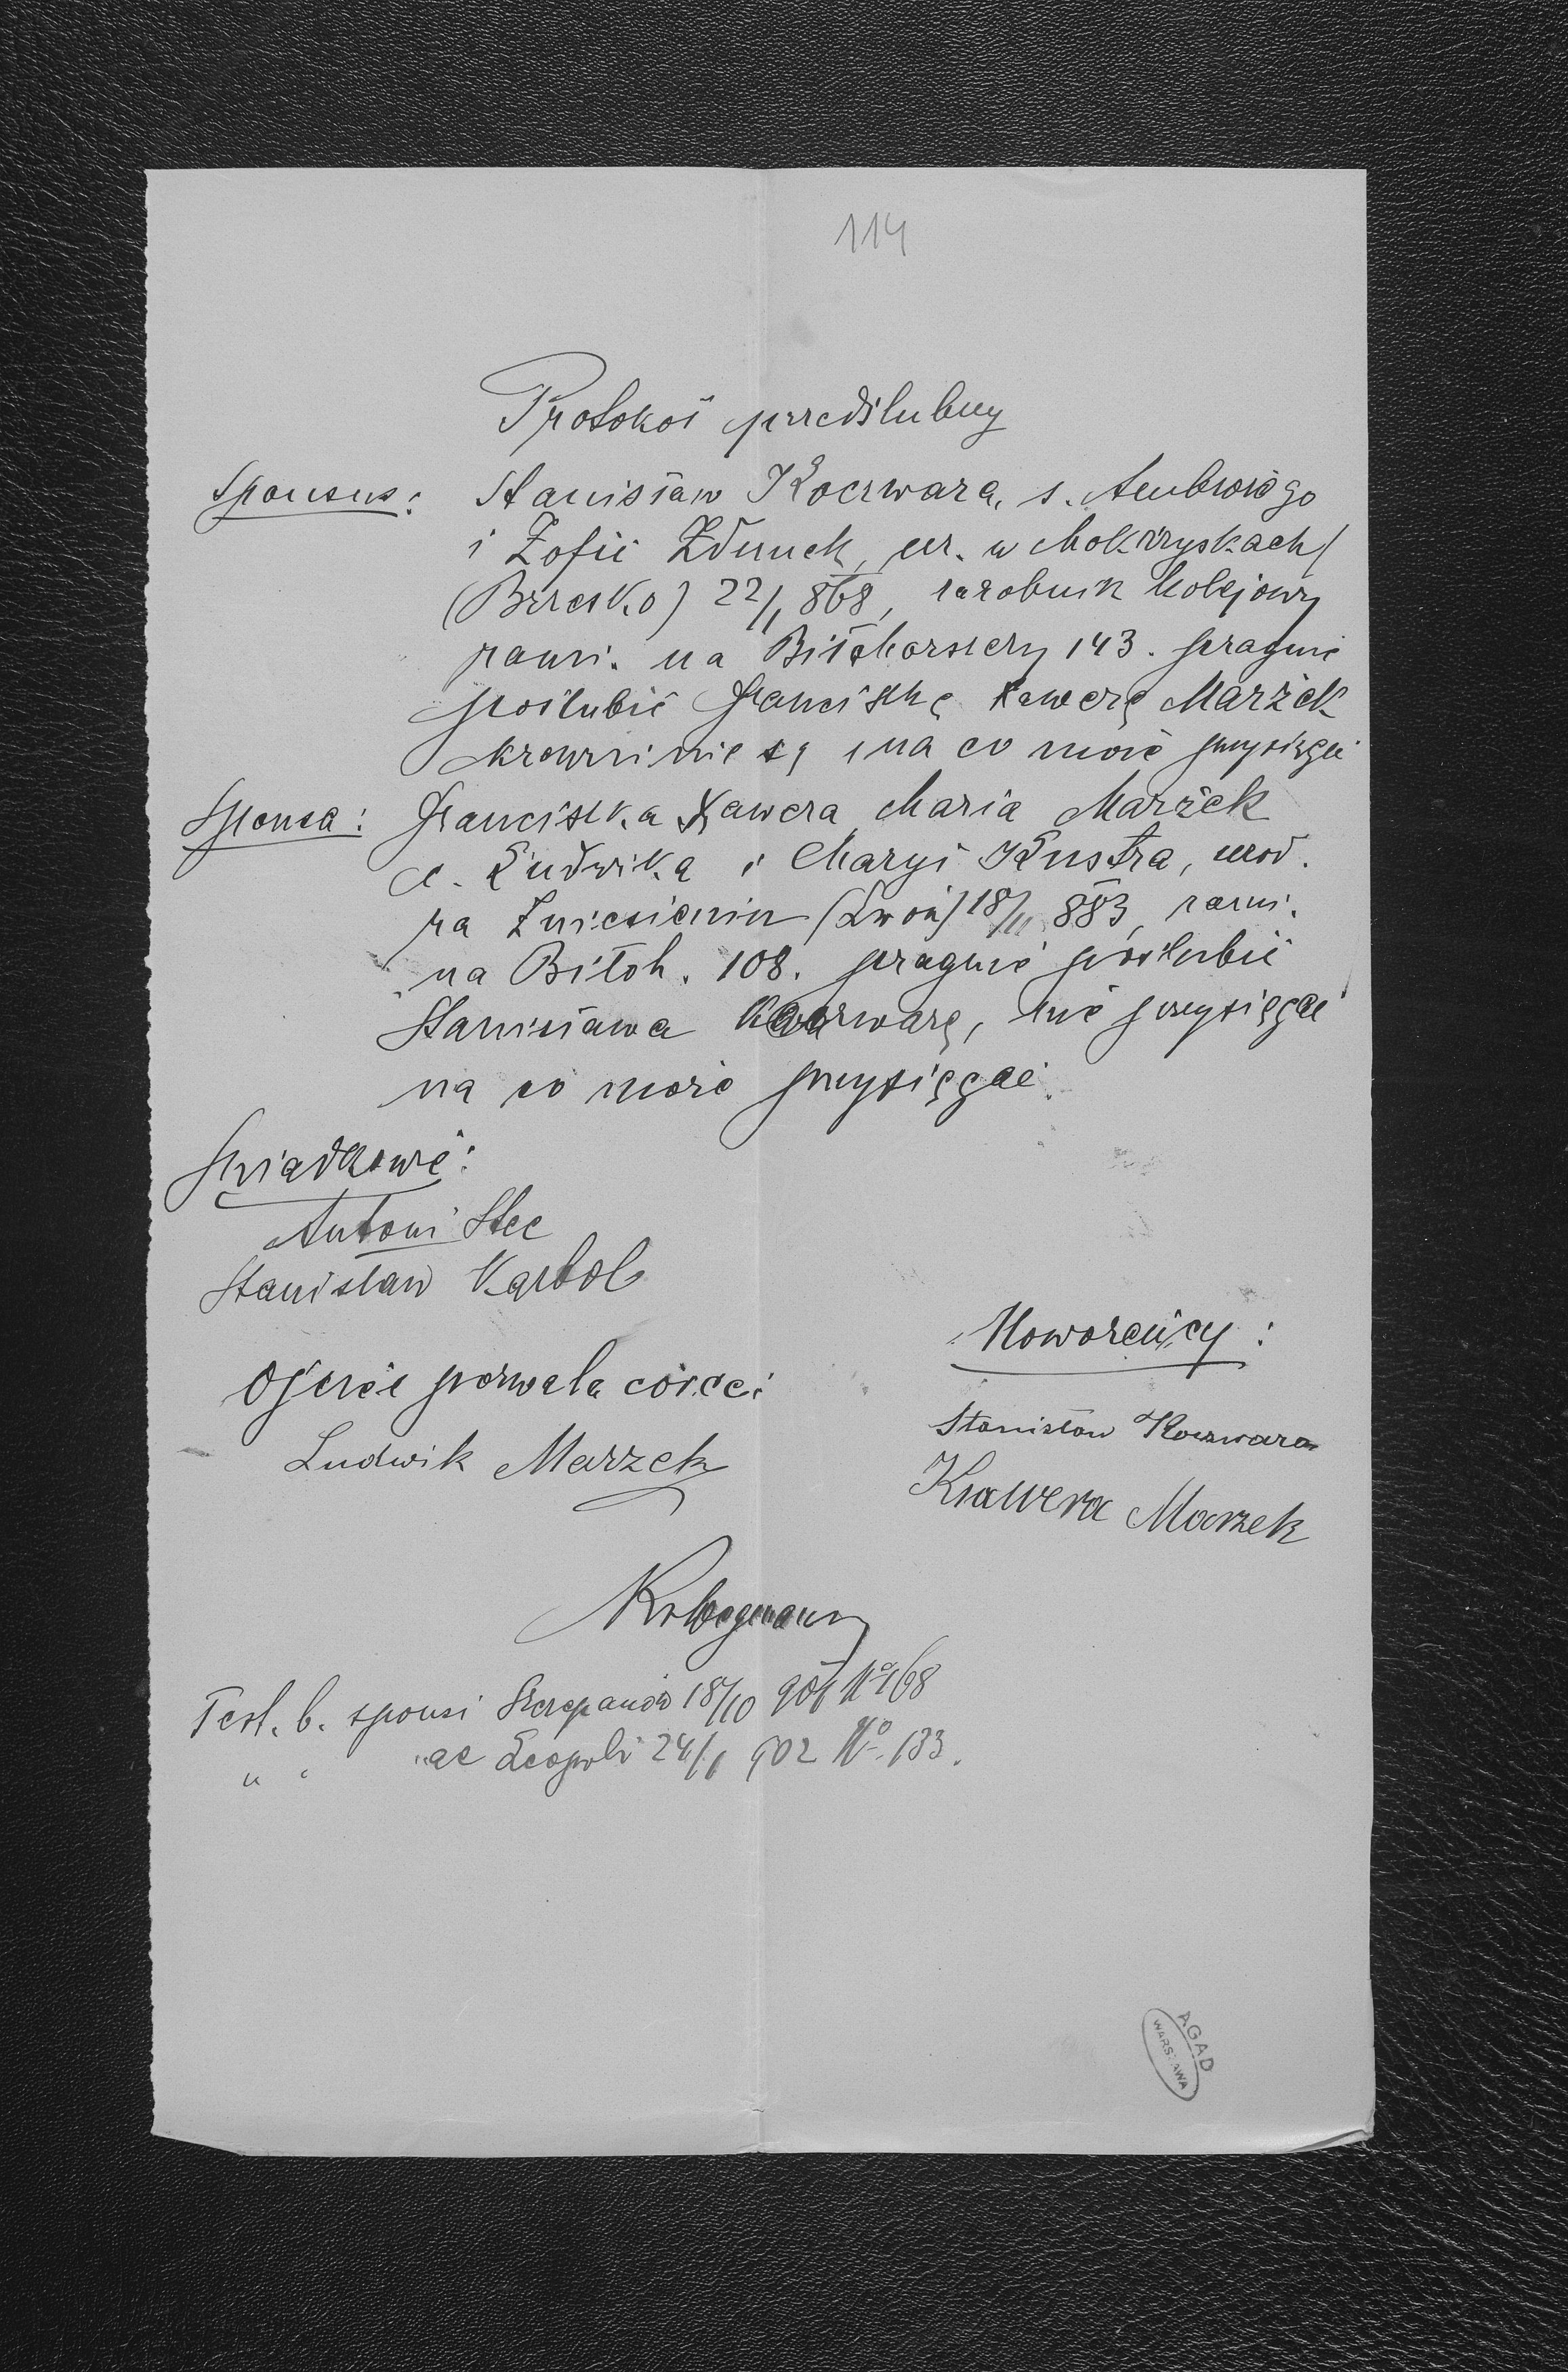 114
Protokół przedślubny
Sponsus: Stanisław Koczwara, s. Ambrożego
i Zofii Żdunek, ur. w Mokrzyskach/
(Brzesko) 22/1 868, zarobnik kolejowy
zam. na Biłohorszczy 143. pragnie
poślubić Franciszkę Xawerę Marzek
krewni nie są, na co może przysięgać
Sponsa: Franciszka Xawera Maria Marzek
c. Ludwika i Maryi Kustra, urod.
na Zniesieniu (Lwów) 18/11 883, zam.
na Biłoh. 108. pragnie poślubić
Stanisława Koczwarę, nie przysięgać
na co może przysięgać.
Świadkowie:
Antoni Stec
Stanisław Karbol
Noworzeńcy:
Ojciec pozwala córce:
Stanisław Koczwara
Ludwik Marzek
Ksawera Marzek
Test. b. sponsi Szczepanów 18/10 901 No 168
" " "ae Leopoli 24/1 902 No 133.
AGAD
WARSZAWA